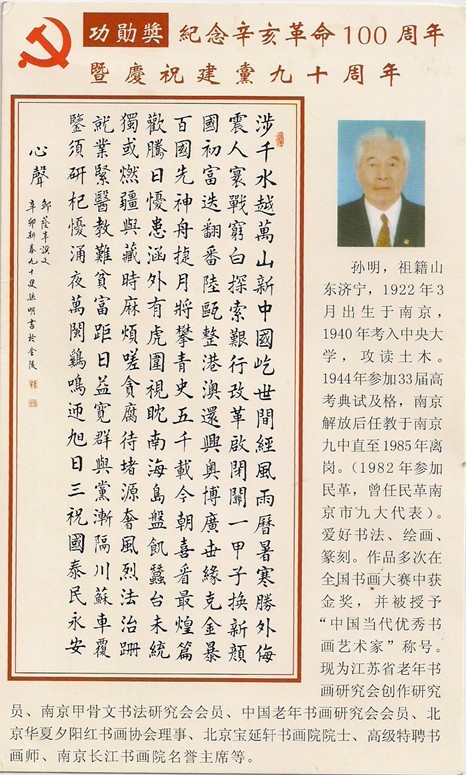 功勋獎 紀念辛亥革命100周年
暨慶祝建黨九十周年
涉千水越萬山新中國屹世間經風雨曆暑寒勝外侮
震人寰戰窮白探索艱行改革啟閉關一甲子換新顏
國初富迭翻番陸甌整港澳還興奧博廣世緣克金暴
百國先神舟捷月將攀青史五千載今朝喜看最煌篇
歡騰日憂患涵外有虎圍視眈南海島盤飢蠶台未統
獨或燃疆與藏時麻煩嗟貪腐待堵源奢風烈法治跚
就業緊醫教難貧富距日益寬群與黨漸隔川蘇車覆
鑒須研杞憂涌夜萬闋鷄鳴迎旭日三祝國泰民永安
心聲
辛卯新春九十叟孫明書於金陵
孙明，祖籍山
东济宁，1922年3
月出生于南京，
1940年考入中央大
学，攻读土木。
1944年参加33届高
考典试及格，南京
解放后任教于南京
九中直至1985年离
岗。（1982年参加
民革，曾任民革南
京市九大代表）。
爱好书法、绘画、
篆刻。作品多次在
全国书画大赛中获
金奖，并被授予
“中国当代优秀书
画艺术家”称号。
现为江苏省老年书
画研究会创作研究
员、南京甲骨文书法研究会会员、中国老年书画研究会会员、北
京华夏夕阳红书画协会理事、北京宝延轩书画院院士、高级特聘书
画师、南京长江书画院名誉主席等。